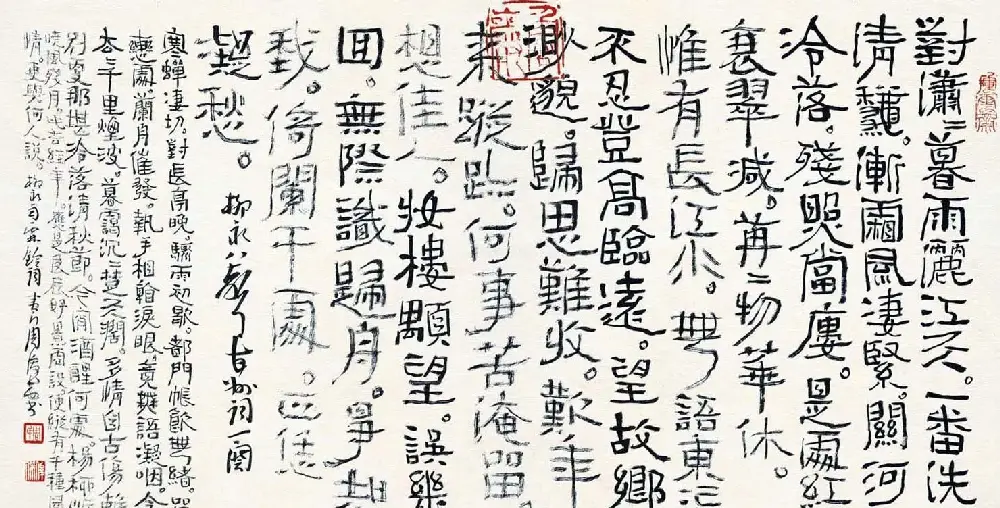 對瀟〻暮雨灑江天。一番洗
清秋。漸霜風淒緊。關河
冷落。殘照當樓。是處紅
衰翠減。苒〻物華休。
惟有長江水。無語東流
不忍登高臨遠。望故鄉
渺邈。歸思難收。歎年
來蹤跡。何事苦淹留。
想佳人。妝樓顒望。誤幾
回。無際識歸舟。爭知
我。倚闌干處。正恁
凝愁。
柳永八聲甘州詞一闋
寒蟬淒切。對長亭晚。驟雨初歇。都門帳飲無緒。留
戀處蘭舟催發。執手相看淚眼。竟無語凝咽。念
去〻千里煙波。暮靄沉〻楚天闊。多情自古傷離
別。更那堪冷落清秋節。今宵酒醒何處。楊柳岸
曉風殘月。此去經年。應是良辰好景虛設。便縱有千種風
情。更與何人說。柳永雨霖鈴詞